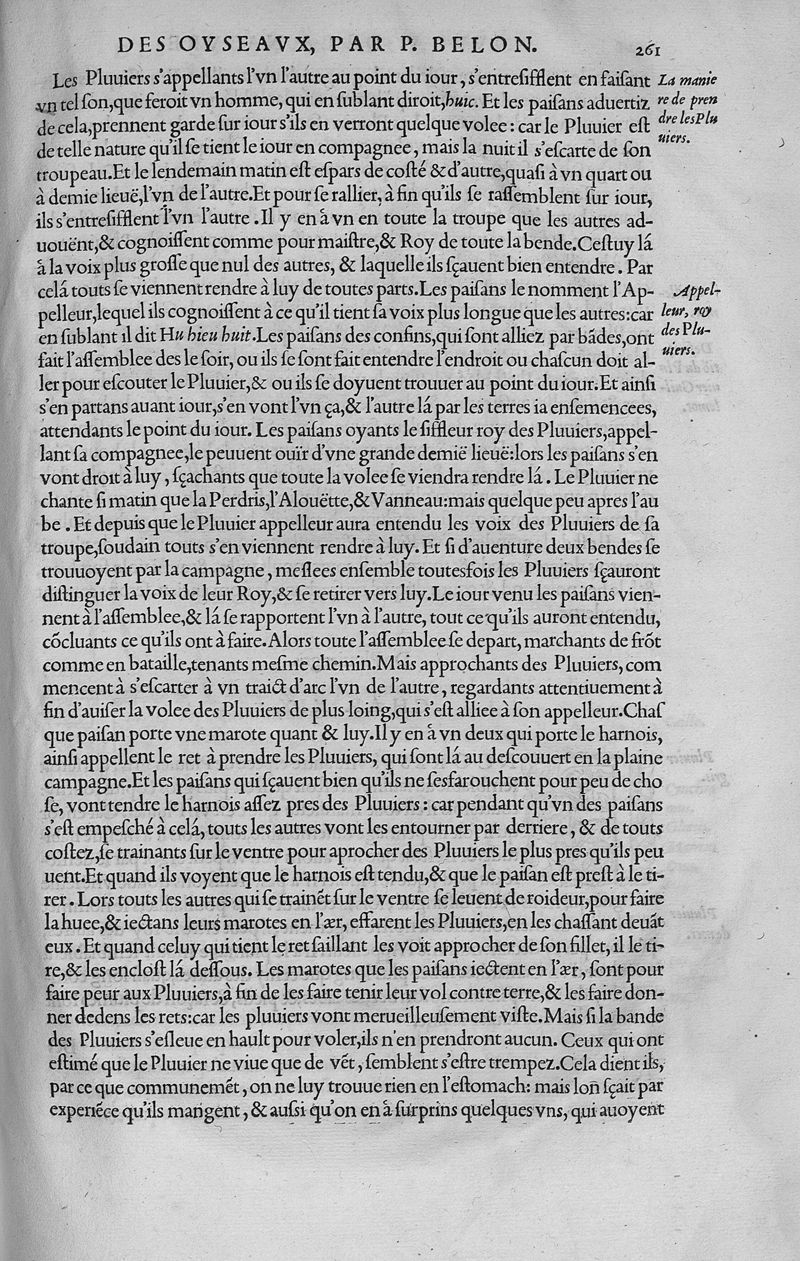 DES OYSEAVX, PAR P. BELON. 261
Les Pluuiers s'appellants l'vn l'autre au point du iour, s'entreſifflent en faiſant
vn tel ſon, que feroit vn homme, qui en ſublant diroit, huic. Et les paiſans aduertiz
de cela, prennent garde ſur iour s'ils en verront quelque volee: car le Pluuier eſt
de telle nature qu'il ſe tient le iour en compagnee, mais la nuit il s'eſcarte de ſon
troupeau. Et le lendemain matin eſt eſpars de coſté & d'autre, quaſi à vn quart ou
à demie lieuë, l'vn de l'autre. Et pour ſe rallier, à fin qu'ils ſe raſſemblent ſur iour,
ils s'entreſifflent l'vn l'autre. Il y en à vn en toute la troupe que les autres ad-
uouënt, & cognoiſſent comme pour maiſtre, & Roy de toute la bende. Ceſtuy lá
à la voix plus groſſe que nul des autres, & laquelle ils ſçauent bien entendre. Par
celá touts ſe viennent rendre à luy de toutes parts. Les paiſans le nomment l'Ap-
pelleur, lequel ils cognoiſſent à ce qu'il tient ſa voix plus longue que les autres: car
en ſublant il dit Hu hieu huit. Les paiſans des confins, qui ſont alliez par bādes, ont
fait l'aſſemblee des le ſoir, ou ils ſe ſont fait entendre l'endroit ou chaſcun doit al-
ler pour eſcouter le Pluuier, & ou ils ſe doyuent trouuer au point du iour. Et ainſi
s'en partans auant iour, s'en vont l'vn ça, & l'autre lá par les terres ia enſemencees,
attendants le point du iour. Les paiſans oyants le ſiffleur roy des Pluuiers, appel-
lant ſa compagnee, le peuuent ouïr d'vne grande demië lieuë: lors les paiſans s'en
vont droit à luy, ſçachants que toute la volee ſe viendra rendre lá. Le Pluuier ne
chante ſi matin que la Perdris, l'Alouëtte, & Vanneau: mais quelque peu apres l'au
be. Et depuis que le Pluuier appelleur aura entendu les voix des Pluuiers de ſa
troupe, ſoudain touts s'en viennent rendre à luy. Et ſi d'auenture deux bendes ſe
trouuoyent par la campagne, meſlees enſemble toutesfois les Pluuiers ſçauront
diſtinguer la voix de leur Roy, & ſe retirer vers luy. Le iour venu les paiſans vien-
nent à l'aſſemblee, & lá ſe rapportent l'vn à l'autre, tout ce qu'ils auront entendu,
cōcluants ce qu'ils ont à faire. Alors toute l'aſſemblee ſe depart, marchants de frōt
comme en bataille, tenants meſme chemin. Mais approchants des Pluuiers, com
mencent à s'eſcarter à vn traict d'arc l'vn de l'autre, regardants attentiuement à
fin d'auiſer la volee des Pluuiers de plus loing, qui s'eſt alliee à ſon appelleur. Chaſ
que paiſan porte vne marote quant & luy. Il y en à vn deux qui porte le harnois,
ainſi appellent le ret à prendre les Pluuiers, qui ſont lá au deſcouuert en la plaine
campagne. Et les paiſans qui ſçauent bien qu'ils ne ſesfarouchent pour peu de cho
ſe, vont tendre le harnois aſſez pres des Pluuiers: car pendant qu'vn des paiſans
s'eſt empeſché à celá, touts les autres vont les entourner par derriere, & de touts
coſtez, ſe trainants ſur le ventre pour aprocher des Pluuiers le plus pres qu'ils peu
uent. Et quand ils voyent que le harnois eſt tendu, & que le paiſan eſt preſt à le ti-
rer. Lors touts les autres qui ſe trainēt ſur le ventre ſe leuent de roideur, pour faire
la huee, & iectans leurs marotes en l'ær, effarent les Pluuiers, en les chaſſant deuāt
eux. Et quand celuy qui tient le ret ſaillant les voit approcher de ſon fillet, il le ti-
re, & les encloſt lá deſſous. Les marotes que les paiſans iectent en l'ær, ſont pour
faire peur aux Pluuiers, à fin de les faire tenir leur vol contre terre, & les faire don-
ner dedens les rets: car les pluuiers vont merueilleuſement viſte. Mais ſi la bande
des Pluuiers s'eſleue en hault pour voler, ils n'en prendront aucun. Ceux qui ont
eſtimé que le Pluuier ne viue que de vēt, ſemblent s'eſtre trempez. Cela dient ils,
par ce que communemēt, on ne luy trouue rien en l'eſtomach: mais lon ſçait par
experiēce qu'ils mangent, & auſsi qu'on en à ſurprins quelques vns, qui auoyent
La manie
re de pren
dre les Plu
uiers.
Appel-
leur, roy
des Plu-
uiers.